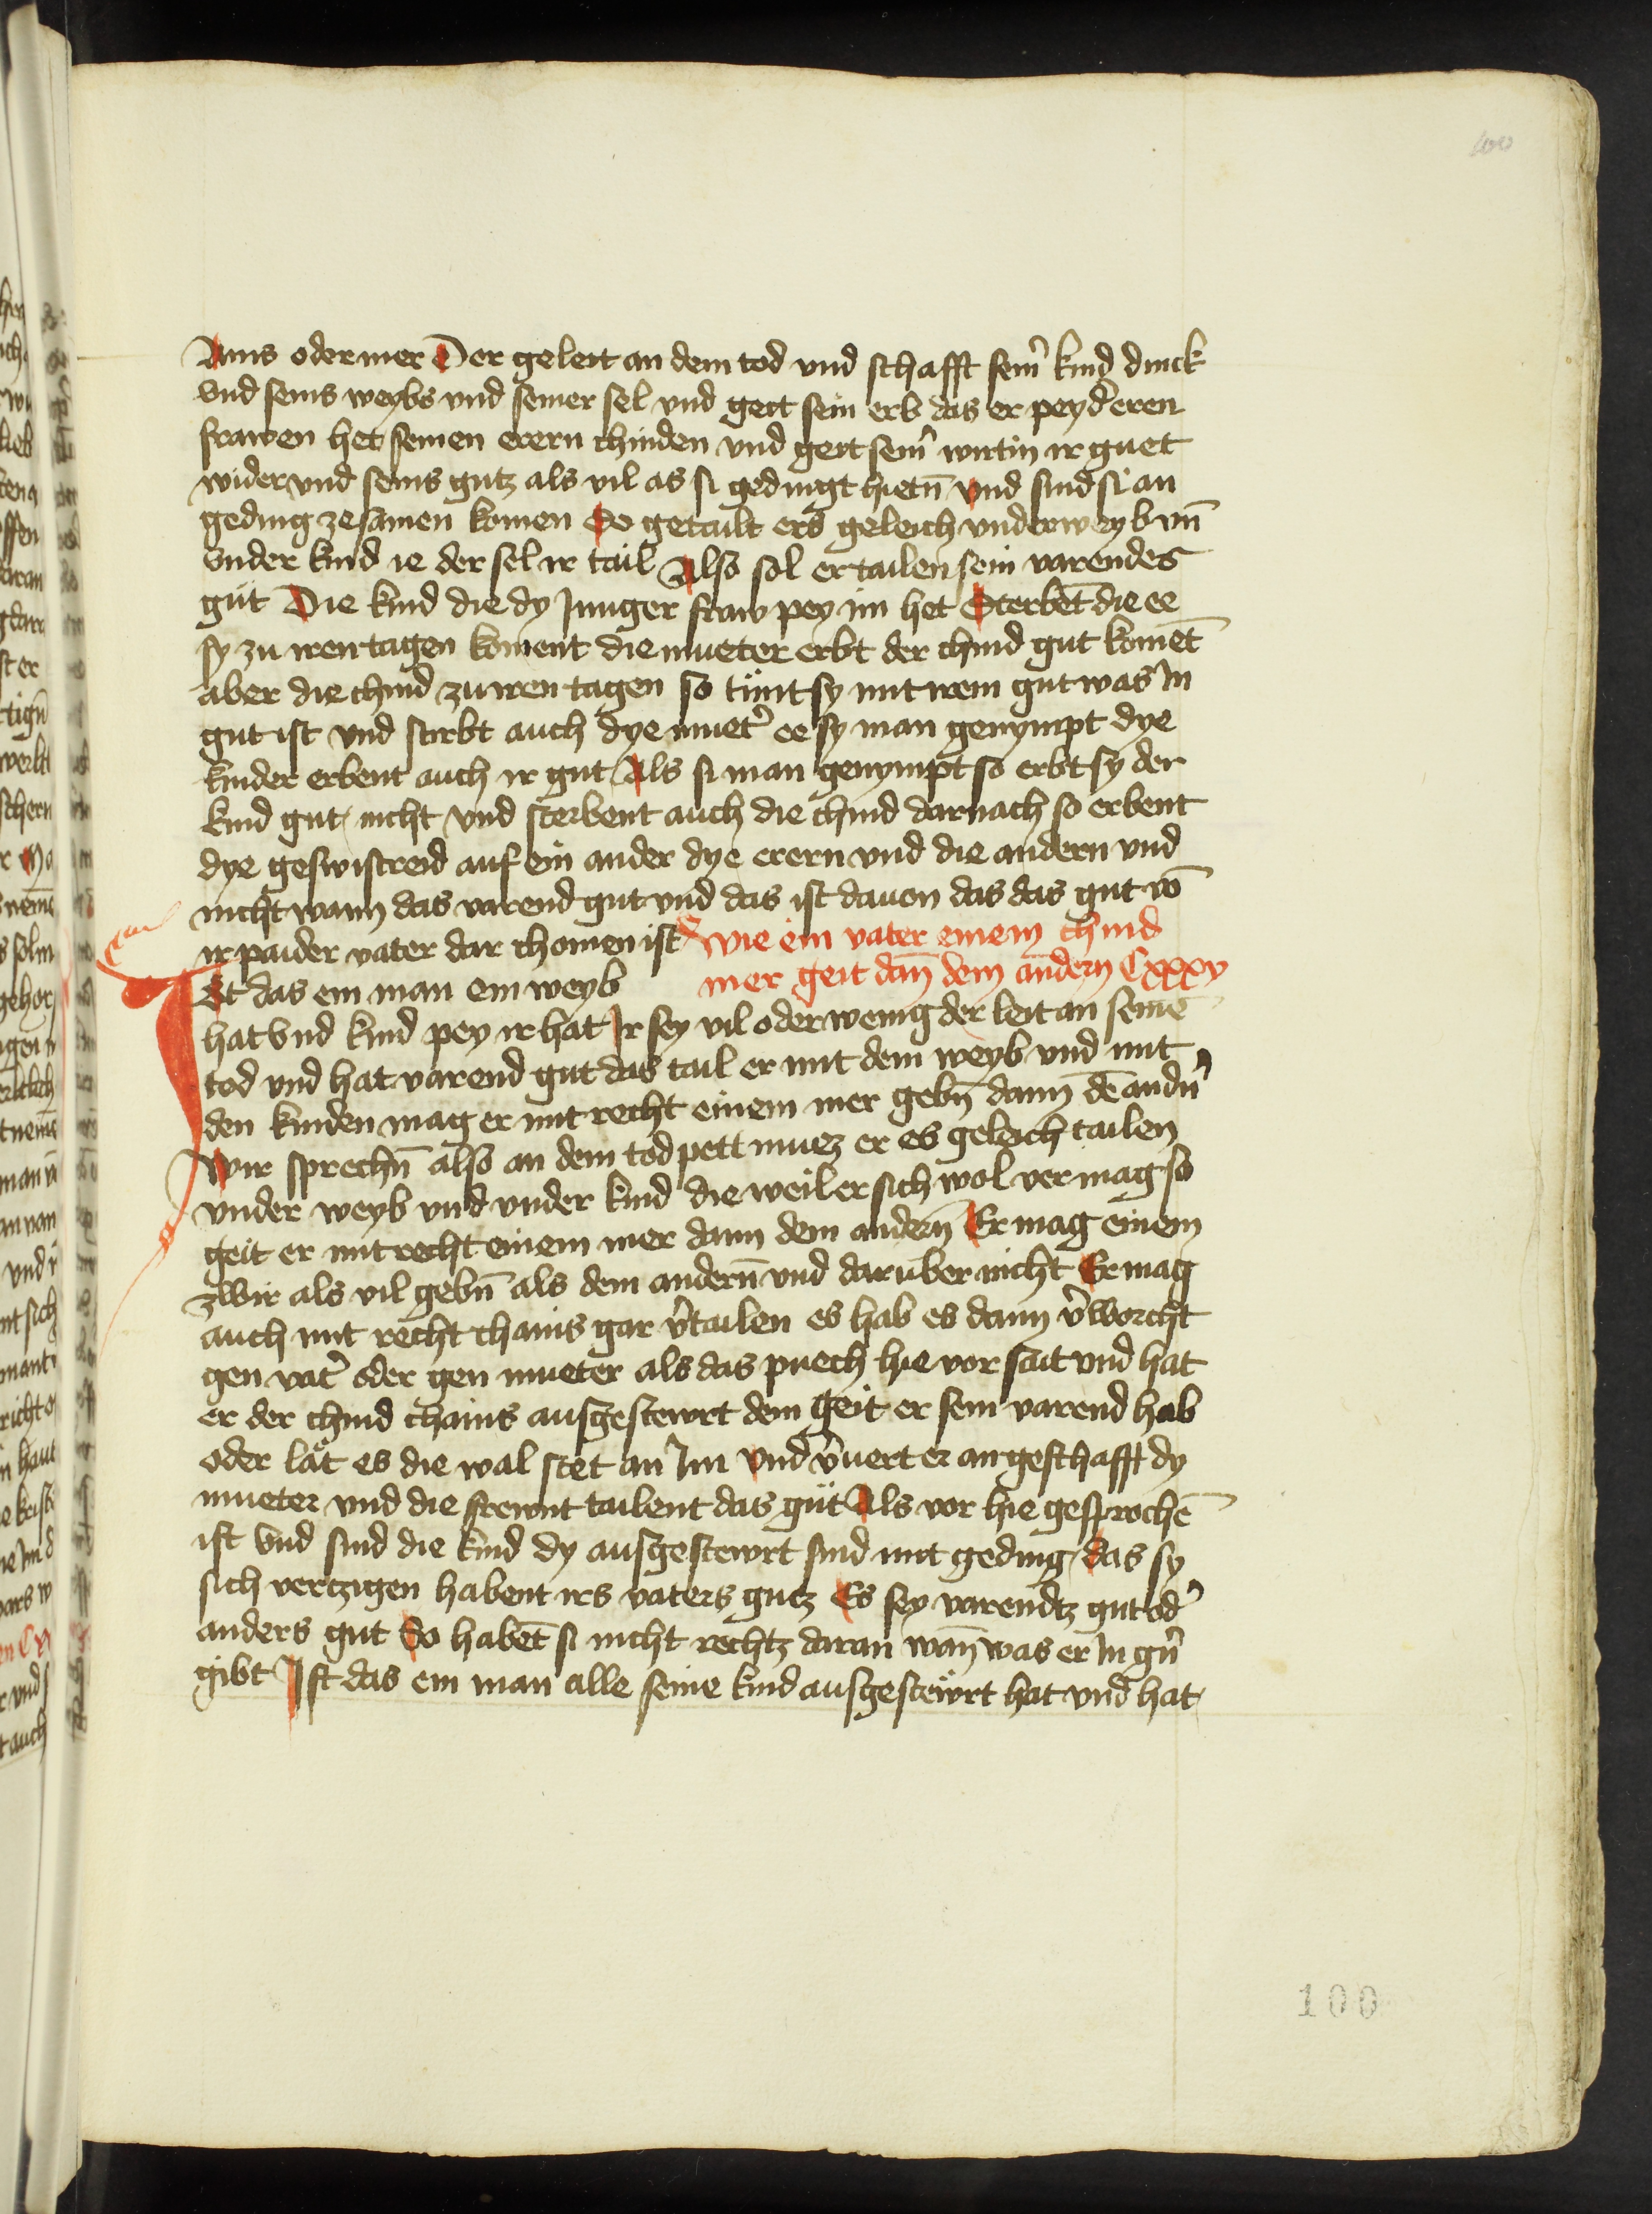 100
Ains oder mer Der geleit an dem tod vnd schafft sein̄ kind dinck
vnd seins weybs vnd seiner sel vnd geit sein erb das er pey d̄ eren
frawen het seinen erern chinden vnd geit sein̄ wirtin ir guet
wider vnd seins gutz als vil as si gedingt hietn̄ vnd sind si an
geding zesamen komen So getailt ers geleich vnder weyb vn̄
vnder kind ie der sel ir tail Also sol er tailen sein varendes
güt Die kind die dy Junger fraw pey im het Sterbēt die ee
sy zu iren tagen koment die mueter erbt der chind gut komēt
aber die chind zu iren tagen so tünt sy mit irem gut was In
gut ist vnd stirbt auch dye muet̄ ee sy man genympt dye
kinder erbent auch ir gut Als si man genympt so erbt sy der
kind gut nicht vnd sterbent auch die chind darnach so erbent
dye geswistreid auf ein ander dye erern vnd die andern vnd
nicht wann das varend gut vnd das ist dauon das das gut vō
ir paider vater dar chomen ist Wie ein vater einem chind
mer geit dan̄ dem andern Cxxxv
Ist das ein man ein weyb
hat vnd kind pey ir hat Ir sey vil oder wenig der leit an seinē
tod vnd hat varend gut das tail er mit dem weyb vnd mit
den kinden mag er mit recht einem mer gebn̄ dann dē andn̄
Wir sprechn̄ also an dem tod pett muez er es geleich tailen
vnder weyb vnd vnder kind die weil er sich wol vermag so
geit er mit recht einem mer dann dem andern̄ Er mag einem
zwir als vil gebn̄ als dem andern̄ vnd darüber nicht Er mag
auch mit recht chains gar v̄tailen es hab es dann v̄worcht
gen vat̄ oder gen mueter als das puech hie vor sait vnd hat
er der chind chains ausgestewrt dem geit er sein varend hab
oder lät es die wal stet an Im vnd v̄uert er an geschafft dy
mueter vnd die frewnt tailent das güt Als vor hie gesprochē
ist vnd sind die kind dy ausgestewrt sind mit geding das sy
sich vertzigen habent irs vaters gutz Es sey varendtz gut od̄
anders gut So habēt si nicht rechtz daran wan̄ was er In gn̄
gibt Ist das ein man alle seine kind ausgestewrt hat vnd hat
100